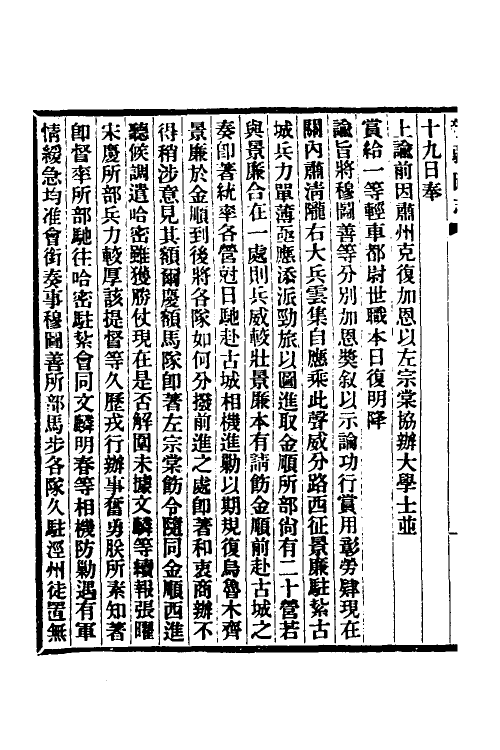 十九日奉
上諭前因肅州克復加恩以左宗棠協辦大學士並
賞給一等輕車都尉世職本日復明降
諭旨將穆圖善等分別加恩獎敘以示論功行賞用彰勞肄現在
關內肅清隴右大兵雲集自應乘此聲威分路西征景廉駐紮古
城兵力單薄亟應添派勁旅以圖進取金順所部尙有二十營若
與景廉合在一處則兵威較壯景廉本有請飭金順前赴古城之
奏卽著統率各營尅日馳赴古城相機進勦以期規復烏魯木齊
景廉於金順到後將各隊如何分撥前進之處卽著和衷商辦不
得稍涉意見其額爾慶額馬隊卽著左宗棠飭令隨同金順西進
聽候調遣哈密雖獲勝仗現在是否解圍未據文麟等續報張曜
宋慶所部兵力較厚該提督等久歷戎行辦事奮勇朕所素知著
卽督率所部馳往哈密駐紮會同文麟明春等相機防勦遇有軍
情緩急均准會銜奏事穆圖善所部馬步各隊久駐涇州徒置無